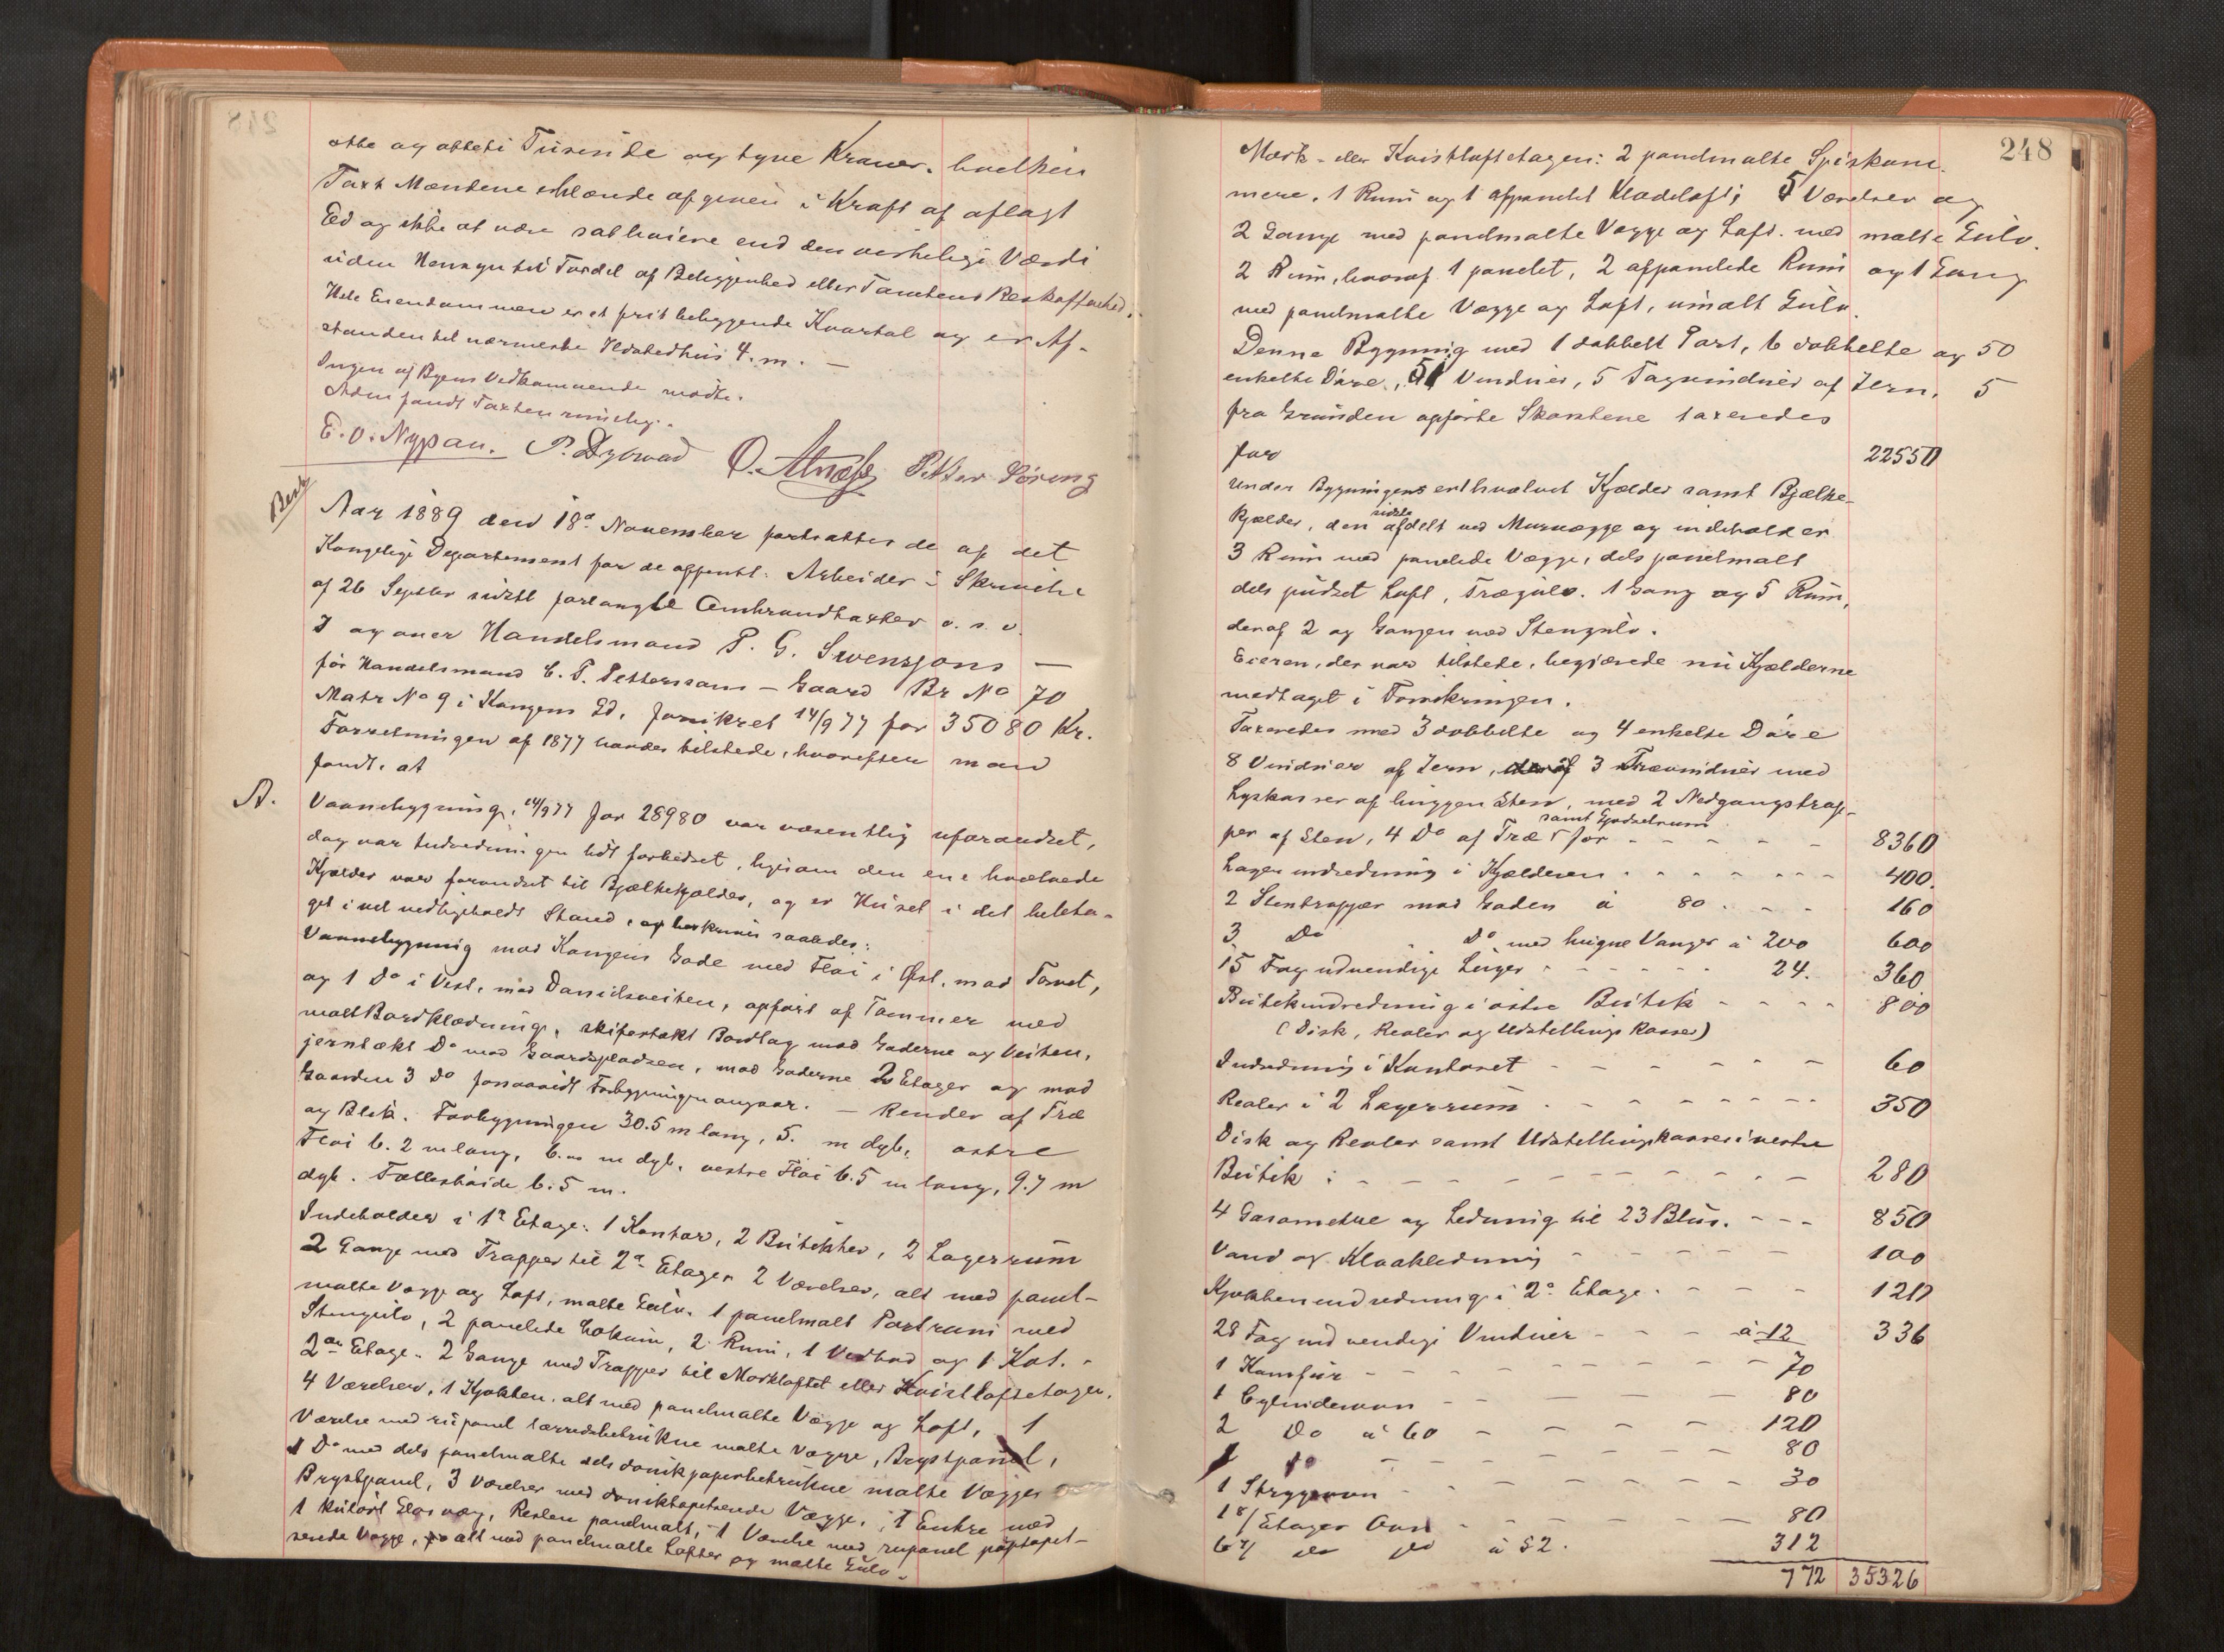 otte og otteti Tusende og tyve Kroner. hvilken
Taxt Mændene erklærede afgiven i Kraft af aflagt
Ed og ikke at være sat høiere end den virkelige Værdi
uden Hensyn til Fordel af Beliggenhed eller Tomtens Beskaffenhed.
Hele Eiendommen er et frit beliggende Kvartal og er Af-
standen til nærmeste Ildstedhus 4. m. —
Ingen af Byens Vedkommende mødte.
fandt Taxten rimelig.
E. O. Nypan. P. Dybwad O. Alnæss Petter Løring
Besk
Aar 1889 den 18de November fortsattes de af det
Kongelige Departement for de offentl: Arbeider i Skrivelse
af 26 Septbr sidstl forlangte Ombrandtaxter o. s. v.
I og over Handelsmand P. G. Svensjons —
før Handelsmand C. P. Petterssons — Gaard Br No 70
Matr No 9 i Kongens Gd, forsikret 14/9 77 for 35080 Kr.
Forretningen af 1877 havdes tilstede, hvorefter man
fandt, at
A.
Vaanebygning, 14/9 77 for 28980 var væsentlig uforandret,
dog var Indredningen lidt forbedret, ligesom den ene hvælvede
Kjælder var forandret til Bjælkekjælder, og er Huset i det heleta-
get i vel vedligeholdt Stand, og beskrives saaledes:
Vaanebygning mod Kongens Gade med Fløi i Øst, mod Torvet,
og 1 Do i Vest, mod Danielsveiten, opført af Tømmer med
malt Bordklædning, skifertækt Bordtag mod Gaderne og Veiten,
jerntækt Do mod Gaardspladsen, mod Gaderne 2 Etager og mod
Gaarden 3 Do forsaavidt Forbygningen angaar. — Render af Træ
og Blik. Forbygningen 30.5 m lang, 5. m dyb, østre
Fløi 6. 2 m lang, 6. m dyb, vestre Fløi 6.5 m lang, 9.7 m
dyb. Fælleshøide 6.5 m.
Indeholder i 1ste Etage: 1 Kontor, 2 Butikker, 2 Lagerrum
2 Gange med Trapper til 2den Etage, 2 Værelser, alt med panel-
malte Vægge og Loft, malte Gulv. 1 panelmalt Portrum med
Stengulv, 2 panelede Lokum, 2 Rum, 1 Vedbod og 1 Kot. -
2den Etage. 2 Gange med Trapper til Mørkloftet eller Kvistloftetagen.
4 Værelser, 1 Kjøkken, alt med panelmalte Vægge og Loft, 1
Værelse med rupanel lærredsbetrukne malte Vægge, Brystpanel,
1 Do med dels panelmalte dels donikpapirbetrukne malte Vægge
Brystpanel, 3 Værelser med doniktapetserede Vægge, 1 Entre med
1 kulørt Glasvæg, Resten panelmalt, 1 Værelse med rupanel paptapet-
serede Vægge, alt med panelmalte Lofter og malte Gulv.
248
Mørk- eller Kvistloftetagen: 2 panelmalte Spiskam-
mere, 1 Rum og 1 afpanelet Klædeloft; 5 Værelser og
2 Gange med panelmalte Vægge og Loft. med malte Gulv.
2 Rum, hvoraf 1 panelet, 2 afpanelede Rum og 1 Gang
med panelmalte Vægge og Loft, umalt Gulv.
Denne Bygning med 1 dobbelt Port, 6 dobbelte og 50
enkelte Døre, 51 Vinduer, 5 Tagvinduer af Jern, 5
fra Grunden opførte Skorstene taxeredes
for 22550
Under Bygningens er 1 hvælvet Kjælder samt Bjælke-
kjælder, den sidste afdelt ved Murvægge og indeholder
3 Rum med panelede Vægge, dels panelmalt
dels pudset Loft, Trægulv. 1 Gang og 5 Rum,
deraf 2 og Gangen med Stengulv.
Eieren, der var tilstede, begjærede nu Kjælderne
medtaget i Forsikringen.
Taxeredes med 3 dobbelte og 4 enkelte Døre
8 Vinduer af Jern, 3 Trævinduer med
Lyskasser af huggen Sten, med 2 Nedgangstrap-
per af Sten, 4 Do af Træ samt Gjødselrum for - - - - - 8360
Lagerindredning i Kjælderen - - - - - - - 400.
2 Stentrapper mod Gaden à 80 - - - 160
3 Do Do med hugne Vanger à 200 600
15 Fag udvendige Luger - - - - - - 24. 360
Butikindredning i østre Butik - - - - 800
(Disk, Reoler og Udstillings Kasser)
Indredning i Kontoret - - - - - - 60
Reoler i 2 Lagerrum - - - - - - - 350
Disk og Reoler samt Udstillingskasser i vestre
Butik: - - - - - - - - - - 280
4 Gasometre og Ledning til 23 Blus. - - - 850
Vand og Kloakledning - - - - - - 100
Kjøkkenindredning i 2den Etage. - - - - 120
28 Fag indvendige Vinduer - - - à 12 336
1 Komfur - - - - - - - - - 70
1 Cylinderovn - - - - - - 80
2 Do à 60 - - - - - 120
1 do - - - - - - - 80
1 Strygeovn - - - - - - - 30
1 8/ Etages Ovn - - - - - - - 80
6 4/ do do à 52. 312
772 35326